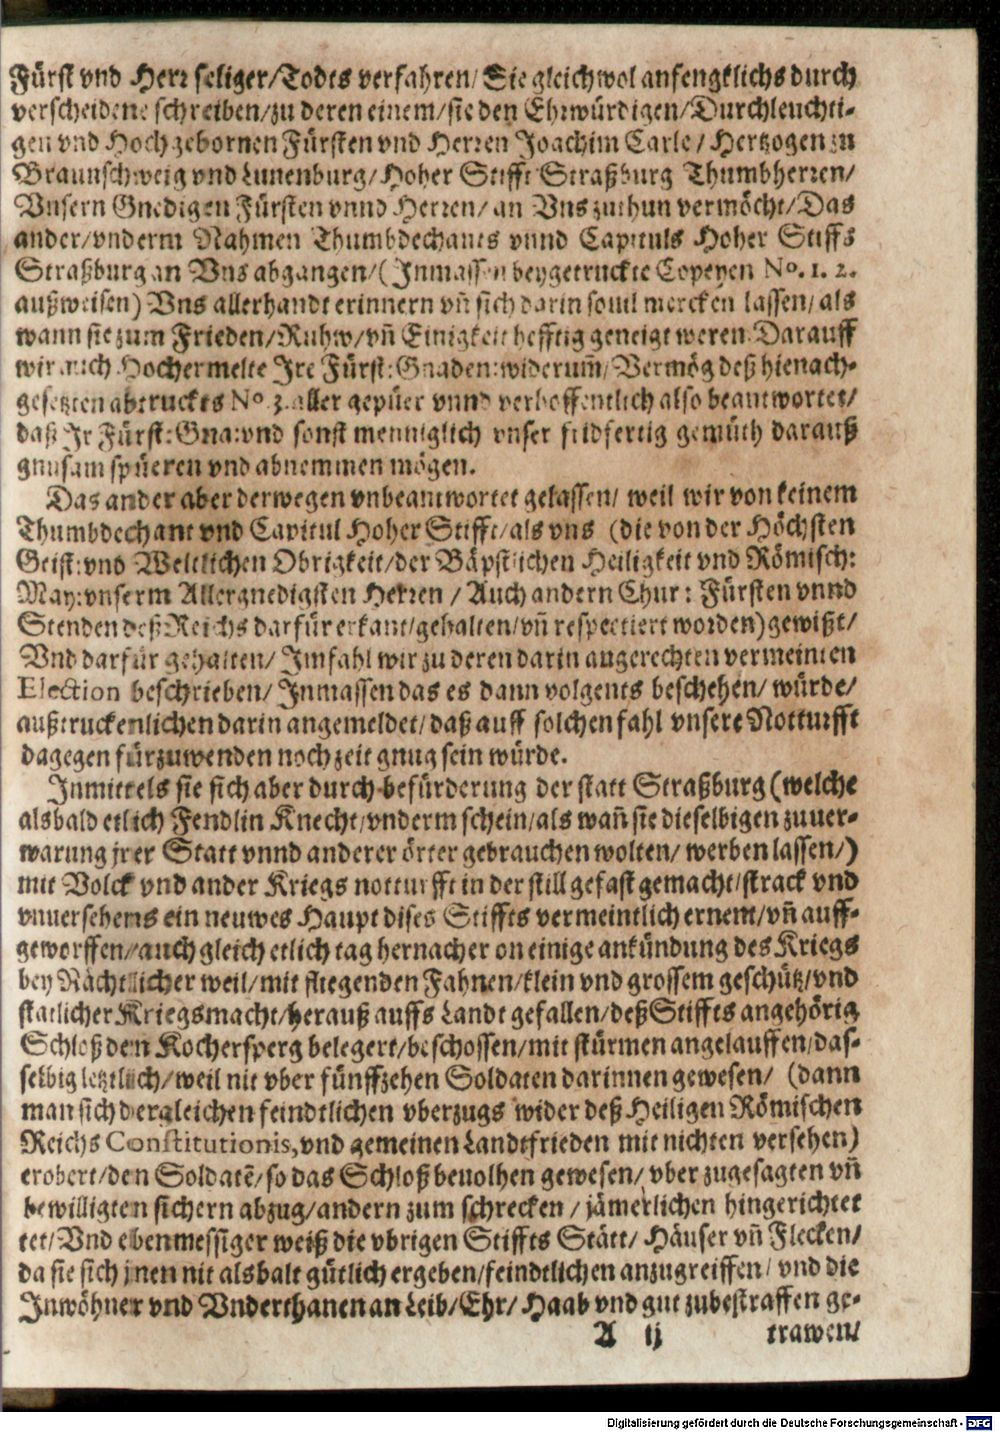 Fürst vnd Herr seliger/Todts verfahren/Sie gleichwol anfengklichs durch
verscheidene schreiben/zu deren einem/sie den Ehrwürdigen/Durchleuchti-
gen vnd Hochgebornen Fürsten vnd Herren Joachim Carle/Hertzogen zu
Braunschweig vnd Lunenburg/Hoher Stifft Straßburg Thumbherren/
Vnsern Gnedigen Fürsten vnnd Herren/an Vns zuthun vermöcht/Das
ander/vnderm Nahmen Thumbdechants vnnd Capituls Hoher Stiffs
Straßburg an Vns abgangen/(Inmassen beygetruckte Copeyen No. 1. 2.
außweisen) Vns allerhandt erinnern vñ sich darin souil mercken lassen/als
wann sie zum Frieden/Ruhw/vñ Einigkeit hefftig geneigt weren. Darauff
wir auch Hochermelte Ire Fürst: Gnaden: widerum̃/Vermög deß hienach-
gesetzten abtruckts No. 3. aller gepüer vnnd verhoffentlich also beantwortet/
daß Ir Fürst: Gna: vnd sonst menniglich vnser fridfertig gemüth darauß
gnusam spüeren vnd abnemmen mögen.
Das ander aber derwegen vnbeantwortet gelassen/ weil wir von keinem
Thumbdechant vnd Capitul Hoher Stifft/als vns (die von der Höchsten
Geist: vnd Weltlichen Obrigkeit/der Bäpstlichen Heiligkeit vnd Römisch:
May: vnserm Allergnedigsten Herren / Auch andern Chur: Fürsten vnnd
Stenden deß Reichs darfür erkant/gehalten/vñ respectiert worden) gewißt/
Vnd darfür gehalten/ Im fahl wir zu deren darin angerechten vermeinten
Election beschrieben/ Inmassen das es dann volgents beschehen/ würde/
außtruckenlichen darin angemeldet/ daß auff solchen fahl vnsere Notturfft
dagegen fürzuwenden noch zeit gnug sein würde.
Inmittels sie sich aber durch befürderung der statt Straßburg (welche
alsbald etlich Fendlin Knecht/vnderm schein/als wañ sie dieselbigen zuuer-
warung jrer Statt vnnd anderer örter gebrauchen wolten/ werben lassen/)
mit Volck vnd ander Kriegs notturfft in der still gefast gemacht/strack vnd
vnuersehens ein neuwes Haupt dises Stiffts vermeintlich ernent/vñ auff-
geworffen/auch gleich etlich tag hernacher on einige ankündung des Kriegs
bey Nächtlicher weil/mit fliegenden Fahnen/klein vnd grossem geschütz/vnd
statlicher Kriegsmacht/herauß auffs Landt gefallen/deß Stiffts angehörig
Schloß den Kochersperg belegert/beschossen/mit stürmen angelauffen/das-
selbig letztlich/weil nit vber fünffzehen Soldaten darinnen gewesen/ (dann
man sich dergleichen feindtlichen vberzugs wider deß Heiligen Römischen
Reichs Constitutionis, vnd gemeinen Landtfrieden mit nichten versehen)
erobert/den Soldatē/so das Schloß beuolhen gewesen/vber zugesagten vñ
bewilligten sichern abzug/andern zum schrecken / jämerlichen hingerichtet
tet/Vnd ebenmessiger weiß die vbrigen Stiffts Stätt/ Häuser vñ Flecken/
da sie sich jnen nit alsbalt gütlich ergeben/feindtlichen anzugreiffen/ vnd die
Inwöhner vnd Vnderthanen an Leib/Ehr/ Haab vnd gut zubestraffen ge-
A ij trawen/
Digitalisierung gefördert durch die Deutsche Forschungsgemeinschaft - DFG